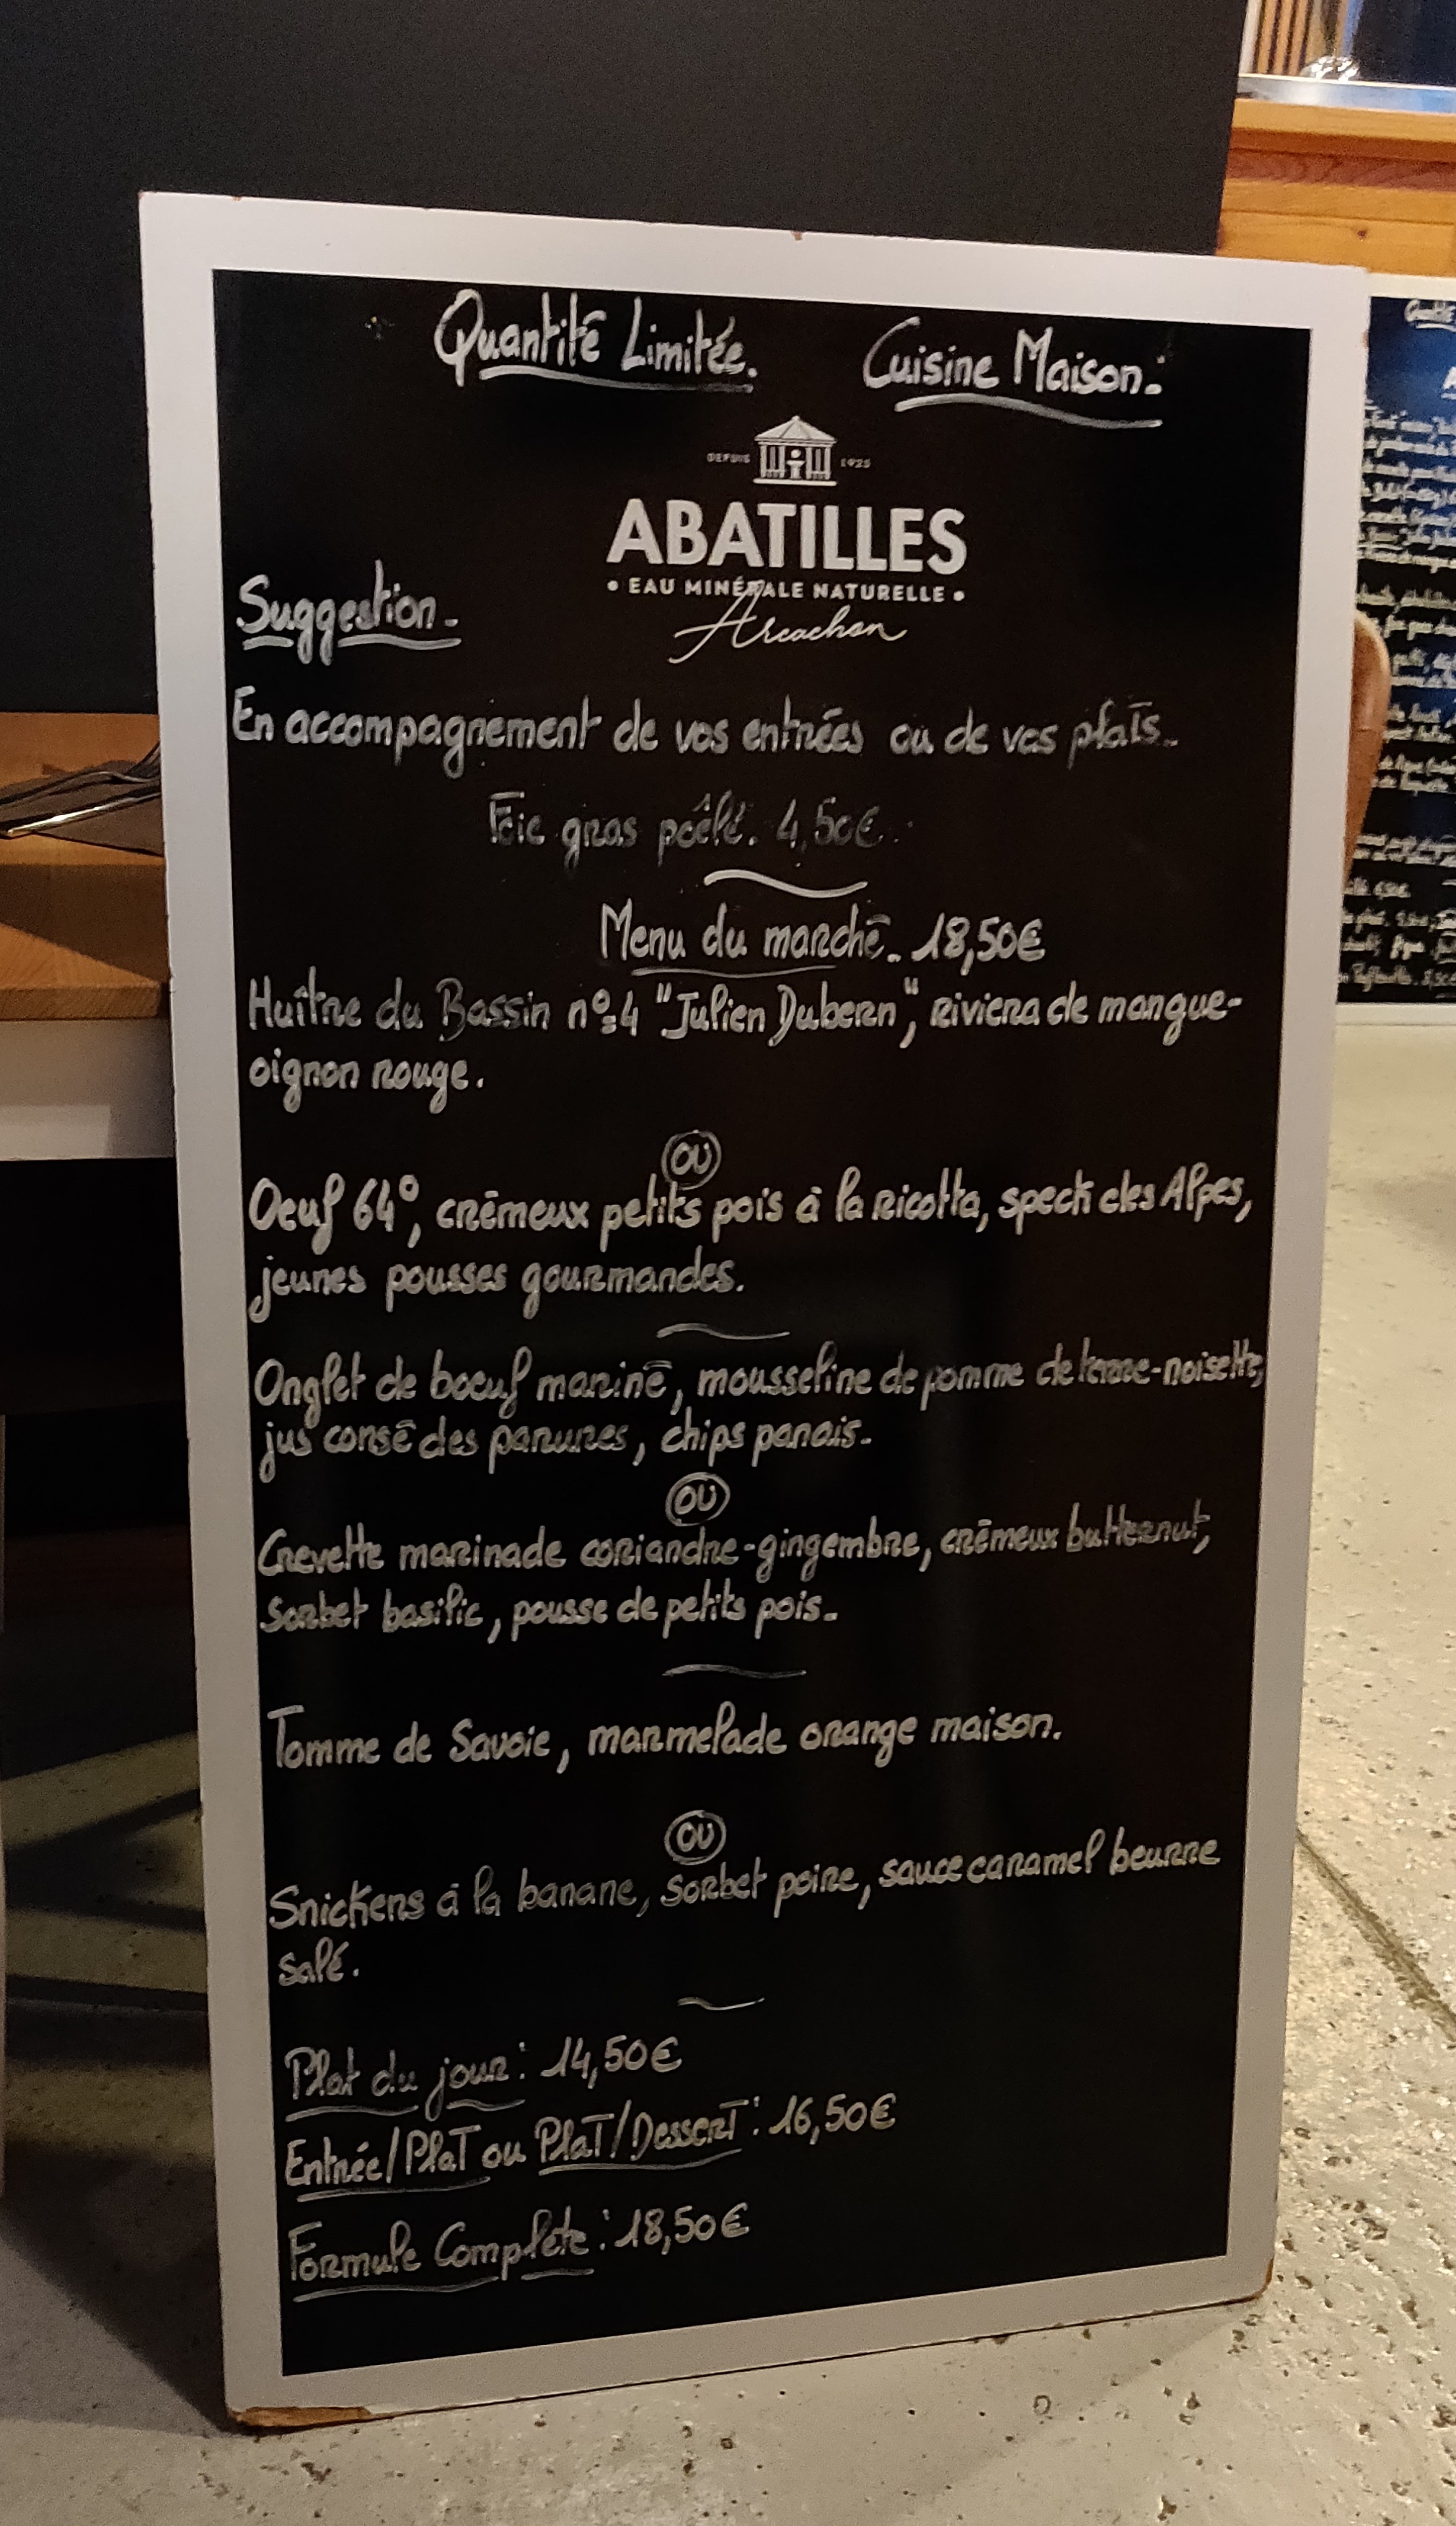 Quantité Limitée. Cuisine Maison.
DEPUIS 1925
ABATILLES
• EAU MINÉRALE NATURELLE •
Arcachon
Suggestion.
En accompagnement de vos entrées ou de vos plats.
Foie gras poêlé. 4,50€.
Menu du marché. 18,50€
Huître du Bassin n°4 "Julien Dubern", riviera de mangue-
oignon rouge.
OU
Oeuf 64°, crémeux petits pois à la ricotta, speck des Alpes,
jeunes pousses gourmandes.
Onglet de boeuf mariné, mousseline de pomme de terre-noisette,
jus consé des parures, chips panais.
OU
Crevette marinade coriandre-gingembre, crémeux butternut,
Sorbet basilic, pousse de petits pois.
Tomme de Savoie, marmelade orange maison.
OU
Snickers à la banane, sorbet poire, sauce caramel beurre
salé.
Plat du jour: 14,50€
Entrée/Plat ou Plat/Dessert: 16,50€
Formule Complète: 18,50€